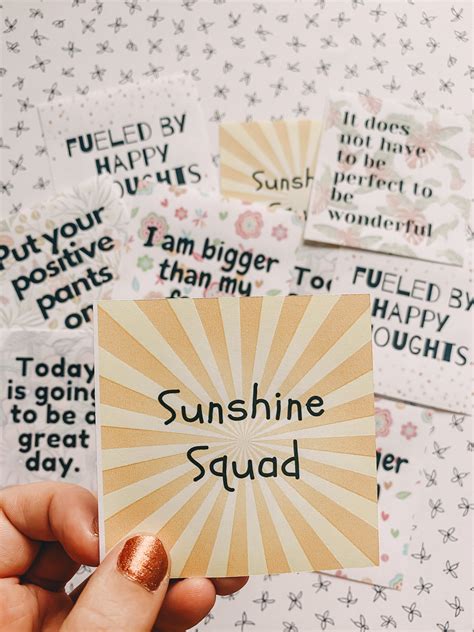 FUELED BY
HAPPY
THOUGHTS
Sunshine
It does
not have
to be
perfect to
be
wonderful
Put your
positive
pants
on
I am bigger
than my
Too
FUELED BY
HAPPY
THOUGHTS
Today
is going
to be a
great
day.
Sunshine
Squad